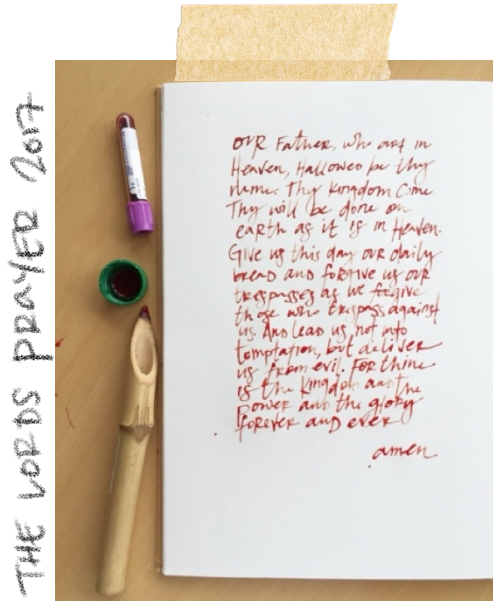 THE LORDS PRAYER 2017
OUR Father, who art in
Heaven, Hallowed be thy
name. Thy Kingdom Come
Thy will be done on
earth as it is in Heaven.
Give us this day our daily
bread and forgive us our
trespasses as we forgive
those who trespass against
us. And lead us not into
temptation, but deliver
us from evil. For thine
is the Kingdom and the
Power and the glory
forever and ever
amen